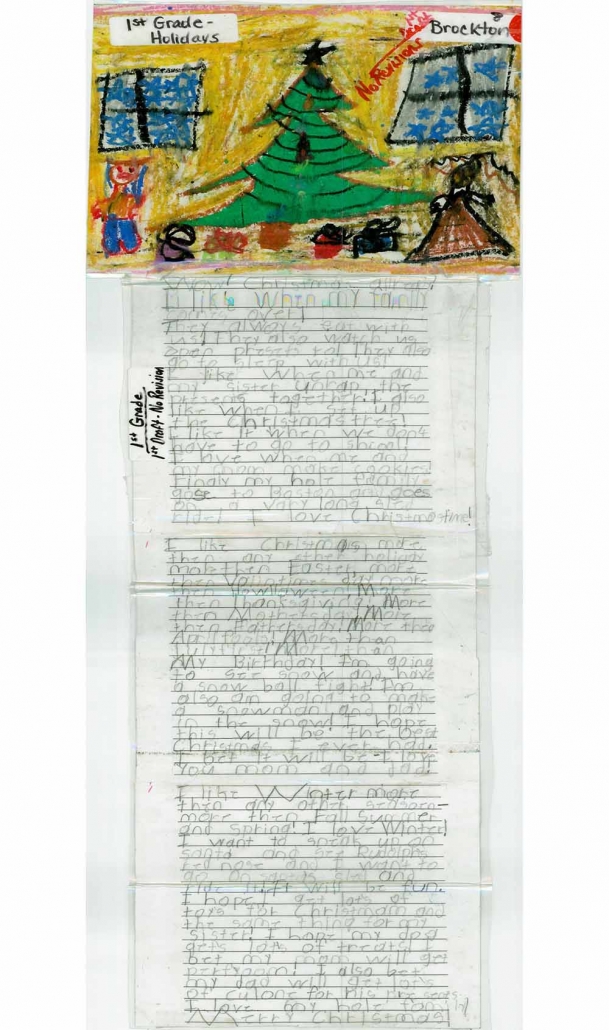 1st Grade -
Holidays
1st Draft
No Revisions
Brockton
Wow! Christmas
I like when my family
comes over!
They always eat with
us! They also watch us
open presents too! They also
go to sleep with us!
I like when me and
my sister unrap the
presens together! I also
like when I set up
the Christmas tree!
I like it when we dont
have to go to shcool!
I love when me and
my mom make cookies!
Finaly my hole family
goes to Boston and goes
on a vary long
ride! I love Christmastime!
1st Grade
1st Draft - No Revision
I like Christmas more
then any other holiday
more then Easter, more
then Valintines day more
then Hawloween! More
then thanksgiving! More
then Mothersday! More
then Fathersday! More then
April fools! More than
July first! More! than
My Birthday! I'm going
to see snow and have
a snow ball fight! I'm
also am going to make
a snowman and play
in the snow! I hope
this will be the best
Christmas I ever had.
I bet it will be-I love
you mom and dad!
I like Winter more
then any other seasen-
more then Fall Summer
and Spring! I love Winter!
I want to sneak up on
santa and see Rudolphs
red nose and I want to
go on santas sled and
ride it-it will be fun.
I hope I get lots of
toys for Christmam and
the same thing for my
sister! I hope my dog
gets lots of treats! I
bet my mom will get
perfyoom! I also bet
my dad will get lots
of culone for his presents
I love my hole family!
Merry Christmas!